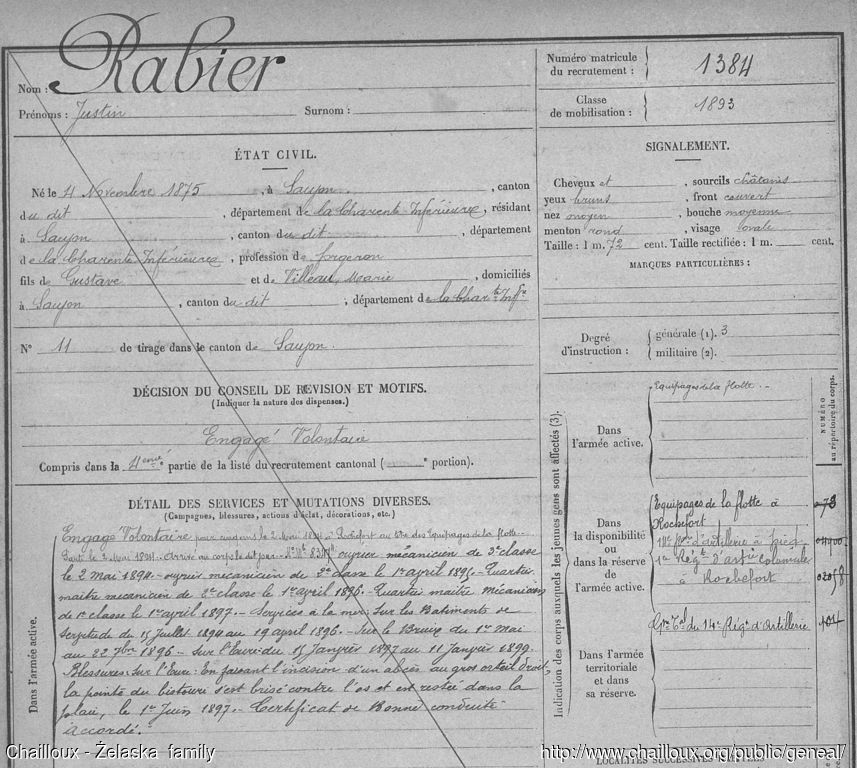 Nom : Rabier
Prénoms : Justin Surnom :
ÉTAT CIVIL.
Né le 4 Novembre 1875, à Saujon, canton
du dit, département de la Charente Inférieure, résidant
à Saujon, canton du dit, département
de la Charente Inférieure, profession de forgeron
fils de Gustave et de Villeau, Marie, domiciliés
à Saujon, canton du dit, département de la Charte Infre
N° 11 de tirage dans le canton de Saujon.
DÉCISION DU CONSEIL DE REVISION ET MOTIFS.
(Indiquer la nature des dispenses.)
Engagé Volontaire
Compris dans la 4eme partie de la liste du recrutement cantonal ( portion).
DÉTAIL DES SERVICES ET MUTATIONS DIVERSES.
(Campagnes, blessures, actions d'éclat, décorations, etc.)
Dans l'armée active.
Engagé Volontaire pour cinq ans le 2 Mai 1894 à Rochefort au titre des Equipages de la flotte.
Parti le 2 Mai 1894. Arrivé au corps le dit jour. ouvrier mécanicien de 3e classe
le 2 mai 1894 - ouvrier mecanicien de 2e classe le 1er avril 1895. - Quartier
maitre mecanicien de 2e classe le 1er avril 1896. - Quartier maitre Mécanicien
de 1e classe le 1er avril 1897. - Services à la mer: Sur les Batiments de
servitude du 15 juillet 1894 au 19 avril 1896. - Sur le Bruix du 1er Mai
au 22 7bre 1896 - Sur l'Eure: du 15 Janvier 1897 au 11 Janvier 1899.
Blessures: Sur l'Eure: En faisant l'incision d'un abcès au gros orteil droit,
la pointe du bistouri s'est brisé contre l'os et est restée dans la
plaie, le 1er Juin 1897. - Certificat de Bonne conduite
accordé. -
Numéro matricule du recrutement : 1384
Classe de mobilisation : 1893
SIGNALEMENT.
Cheveux et, sourcils châtains
yeux bruns, front couvert
nez moyen, bouche moyenne
menton rond, visage ovale
Taille : 1 m. 72 cent. Taille rectifiée : 1 m. cent.
MARQUES PARTICULIÈRES :
Degré d'instruction : générale (1). 3
militaire (2).
Indication des corps auxquels les jeunes gens sont affectés (3).
NUMÉRO
au répertoire du corps.
Dans l'armée active.
Equipages de la flotte. -
Dans la disponibilité ou dans la réserve de l'armée active.
Equipages de la flotte à
Rochefort
d'artillerie à pied
1er Régt d'artie Coloniale
à Rochefort
Dans l'armée territoriale et dans sa réserve.
Gpe Tal du 14e Régt d'Artillerie
LOCALITÉS SUCCESSIVES HABITÉES
Chailloux - Żelaska family
http://www.chailloux.org/public/geneal/